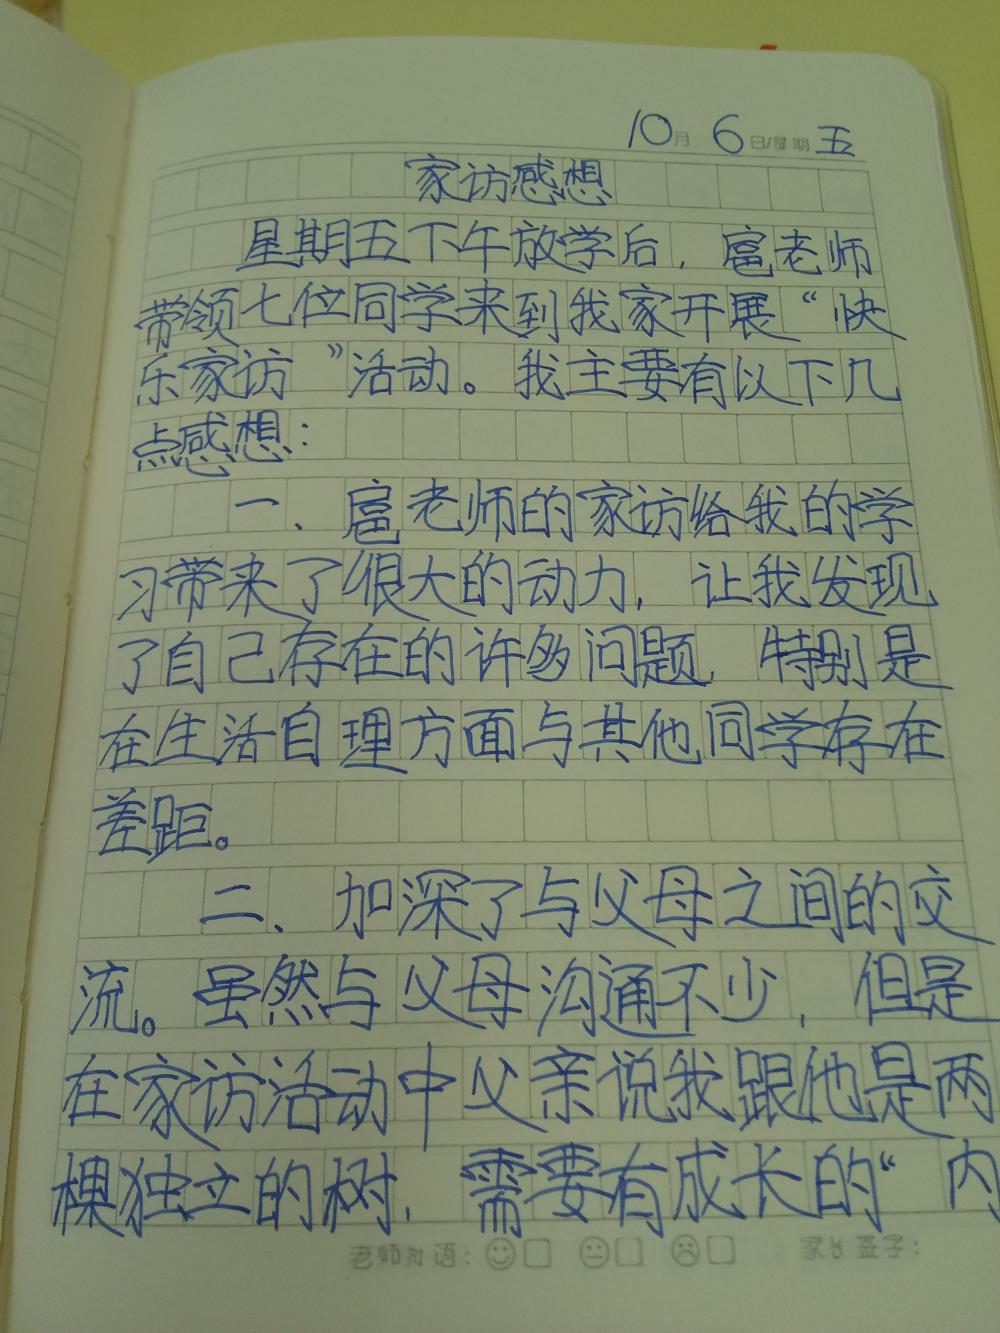 10月 6日/星期 五
家访感想
星期五下午放学后，扈老师
带领七位同学来到我家开展“快
乐家访”活动。我主要有以下几
点感想：
一、扈老师的家访给我的学
习带来了很大的动力，让我发现
了自己存在的许多问题，特别是
在生活自理方面与其他同学存在
差距。
二、加深了与父母之间的交
流。虽然与父母沟通不少，但是
在家访活动中父亲说我跟他是两
棵独立的树，需要有成长的“内
老师对语： 家长签字：